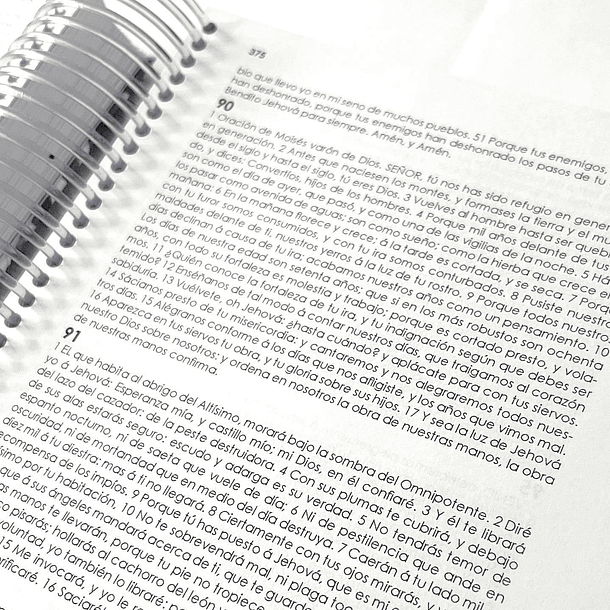 375
bio que llevo yo en mi seno de muchos pueblos. 51 Porque tus enemigos,
han deshonrado, porque tus enemigos han deshonrado los pasos de tu
Bendito Jehová para siempre. Amén, y Amén.
90
1 Oración de Moisés varón de Dios. SEÑOR, tú nos has sido refugio en
en generación. 2 Antes que naciesen los montes, y formases la tierra y el
desde el siglo y hasta el siglo, tú eres Dios. 3 Vuelves al hombre hasta ser
do, y dices: Convertíos, hijos de los hombres. 4 Porque mil años delante de tus
son como el día de ayer, que pasó, y como una de las vigilias de la noche. 5
los pasar como avenida de aguas; son como sueño; como la hierba que crece
mañana: 6 En la mañana florece y crece; á la tarde es cortada, y se seca. 7
con tu furor somos consumidos, y con tu ira somos conturbados. 8 Pusiste
maldades delante de ti, nuestros yerros á la luz de tu rostro. 9 Porque todos nuestros
días declinan á causa de tu ira; acabamos nuestros años como un pensamiento. 10
Los días de nuestra edad son setenta años; que si en los más robustos son ochenta
años, con todo su fortaleza es molestia y trabajo; porque es cortado presto, y vola-
mos. 11 ¿Quién conoce la fortaleza de tu ira, y tu indignación según que debes ser
temido? 12 Enséñanos de tal modo á contar nuestros días, que traigamos al corazón
sabiduría. 13 Vuélvete, oh Jehová: ¿hasta cuándo? y aplácate para con tus siervos.
14 Sácianos presto de tu misericordia: y cantaremos y nos alegraremos todos nues-
tros días. 15 Alégranos conforme á los días que nos afligiste, y los años que vimos mal.
16 Aparezca en tus siervos tu obra, y tu gloria sobre sus hijos. 17 Y sea la luz de Jehová
nuestro Dios sobre nosotros: y ordena en nosotros la obra de nuestras manos, la obra
de nuestras manos confirma.
91
1 EL que habita al abrigo del Altísimo, morará bajo la sombra del Omnipotente. 2 Diré
yo á Jehová: Esperanza mía, y castillo mío; mi Dios, en él confiaré. 3 Y él te librará
del lazo del cazador: de la peste destruidora. 4 Con sus plumas te cubrirá, y debajo
de sus alas estarás seguro: escudo y adarga es su verdad. 5 No tendrás temor de
espanto nocturno, ni de saeta que vuele de día; 6 Ni de pestilencia que ande en
oscuridad, ni de mortandad que en medio del día destruya. 7 Caerán á tu lado mil,
diez mil á tu diestra: mas á ti no llegará. 8 Ciertamente con tus ojos mirarás, y
ecompensa de los impíos. 9 Porque tú has puesto á Jehová, que es mi
simo por tu habitación, 10 No te sobrevendrá mal, ni plaga
que á sus ángeles mandará acerca de ti, que te
s manos te llevarán, porque tu pie no tropiece
o pisarás; hollarás al cachorro del león
voluntad, yo también lo libraré:
15 Me invocará, y yo le
rificaré. 16